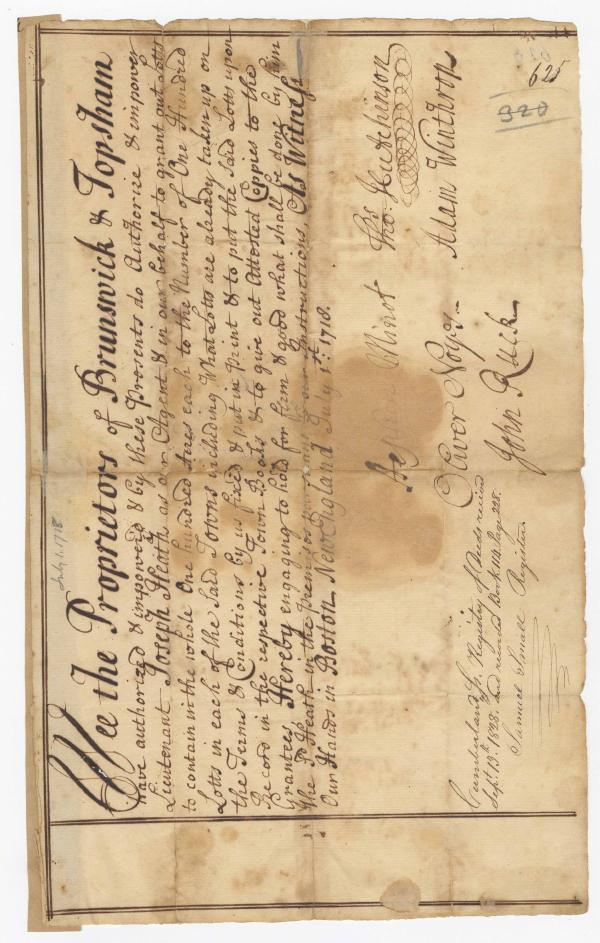 July 1. 1718
Wee the Proprietors of Brunswick & Topsham
Have authorized & impowered & by these Presents do Authorize & impower
Lieutenant Joseph Heath as our Agent & in our behalf to grant out Lotts
to contain in the whole One hundred Acres each to the Number of One Hundred
Lotts in each of the Said Towns including What Lotts are already taken up on
the Terms & Conditions by us fixed & put in Print & to put the Said Lotts upon
Record in the respective Town Books & to give out Attested Coppies to the
Grantees, Hereby engaging to hold for firm & good what shall be done by him
the Sd. Heath in the Premises to our Instructions, As Witness
Our Hands in Boston New England July 1st: 1718.
Minot Tho: Hutchinson
Oliver Noyes Adam Winthrop
John Ruck
Cumberland Ss. Registry of Deeds received
Sept. 13th. 1828. and recorded Book 114. Page 225.
Samuel Small Register.
625
320